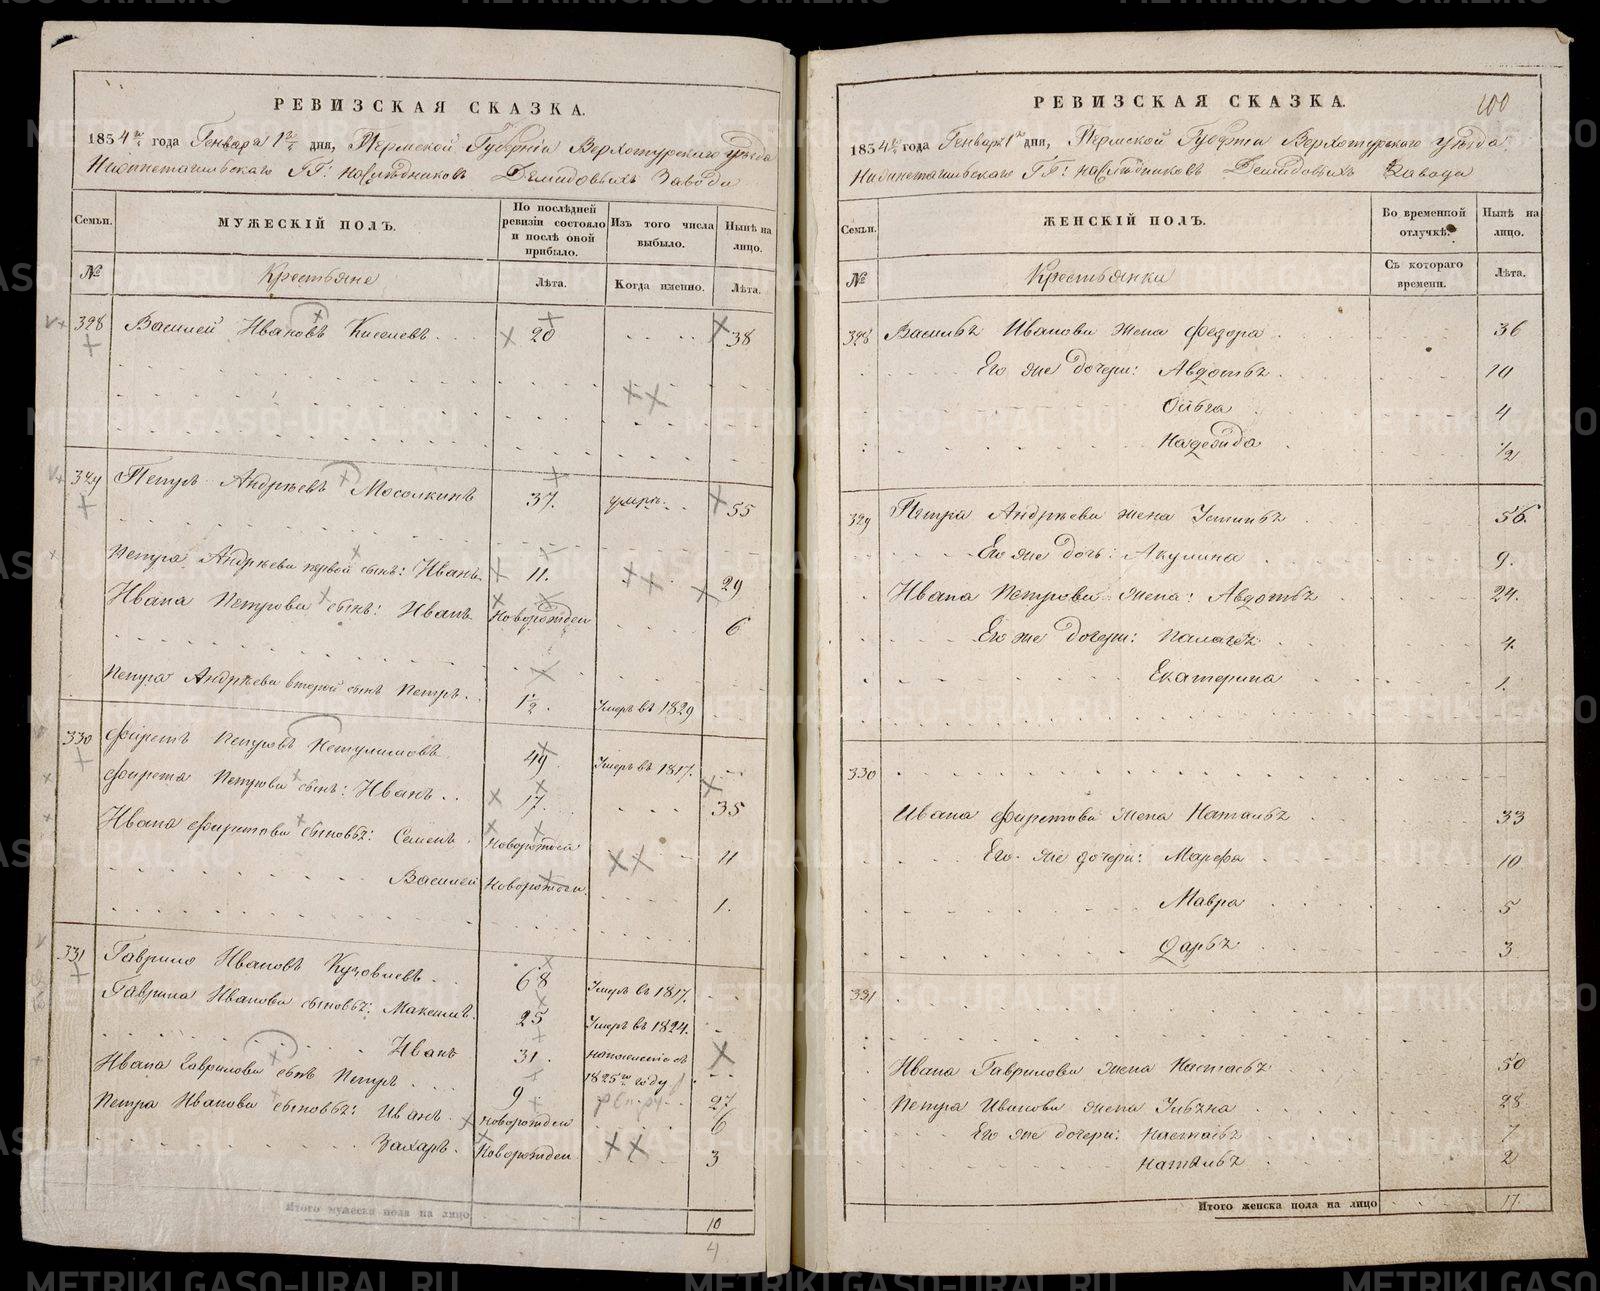 РЕВИЗСКАЯ СКАЗКА.
1834 го года Генваря 1 го дня, Пермской Губерніи Верхотурскаго уѣзда
Нижнетагильскаго ГГ: наслѣдниковъ Демидовыхъ Завода
Семьи. МУЖЕСКІЙ ПОЛЪ. По послѣдней ревизіи состояло и послѣ оной прибыло. Изъ того числа выбыло. Нынѣ на лицо.
№ Крестьяне Лѣта. Когда именно. Лѣта.
328 Василей Ивановъ Киселевъ 20 38
329 Петръ Андрѣевъ Мосолкинъ 37. 55
Петра Андрѣева первой сынъ: Иванъ 11. 29
Ивана Петрова сынъ: Иванъ Новорожден 6
Петра Андрѣева второй сынъ Петръ. 1/2. Умеръ въ 1829
330 Фирстъ Петровъ 49 Умеръ въ 1817.
Фирста Петрова сынъ: Иванъ 17. 35
Ивана Фирстова сыновьѣ: Семенъ. Новорожден 11
Василей Новорожден. 1.
331 Гаврило Ивановъ Кузовлевъ 68 Умеръ въ 1817.
Гаврила Иванова сыновьѣ: Максимъ. 25 Умеръ въ 1824.
Иванъ 31.
1825 го году
Ивана Гаврилова сынъ Петръ 9 27
Петра Иванова сыновьѣ: Иванъ Новорожден 6
Захаръ. Новорожден 3
Итого мужеска пола на лицо 10
4
100
РЕВИЗСКАЯ СКАЗКА.
1834 го года Генваря 1 го дня, Пермской Губерніи Верхотурскаго уѣзда
Нижнетагильскаго ГГ: наслѣдниковъ Демидовыхъ Завода
Семьи. ЖЕНСКІЙ ПОЛЪ. Во временной отлучкѣ. Нынѣ на лицо.
№ Крестьянки Съ котораго времени. Лѣта.
328 Василья Иванова жена Федора 36
Его же дочери: Авдотья 10
Ольга 4
Надежда 1/2
329 Петра Андрѣева жена Устинья 56.
Его же дочь: Акулина 9.
Ивана Петрова жена: Авдотья 24.
Его же дочери: Палагея 4.
Екатерина 1.
330
Ивана Фирстова жена Наталья 33
Его же дочери: Марфа 10
Мавра 5
Дарья 3
331
Ивана Гаврилова жена Настасья 50
Петра Иванова жена Ульяна 28
Его же дочери: Настасья 7
Наталья 2
Итого женска пола на лицо 17.
METRIKI.GASO-URAL.RU